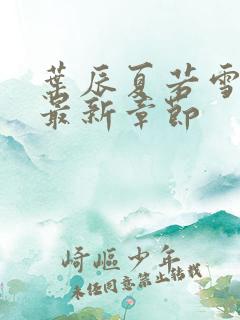 葉辰夏若雪
最新章節
崎嶇少年
未经同意禁止转载